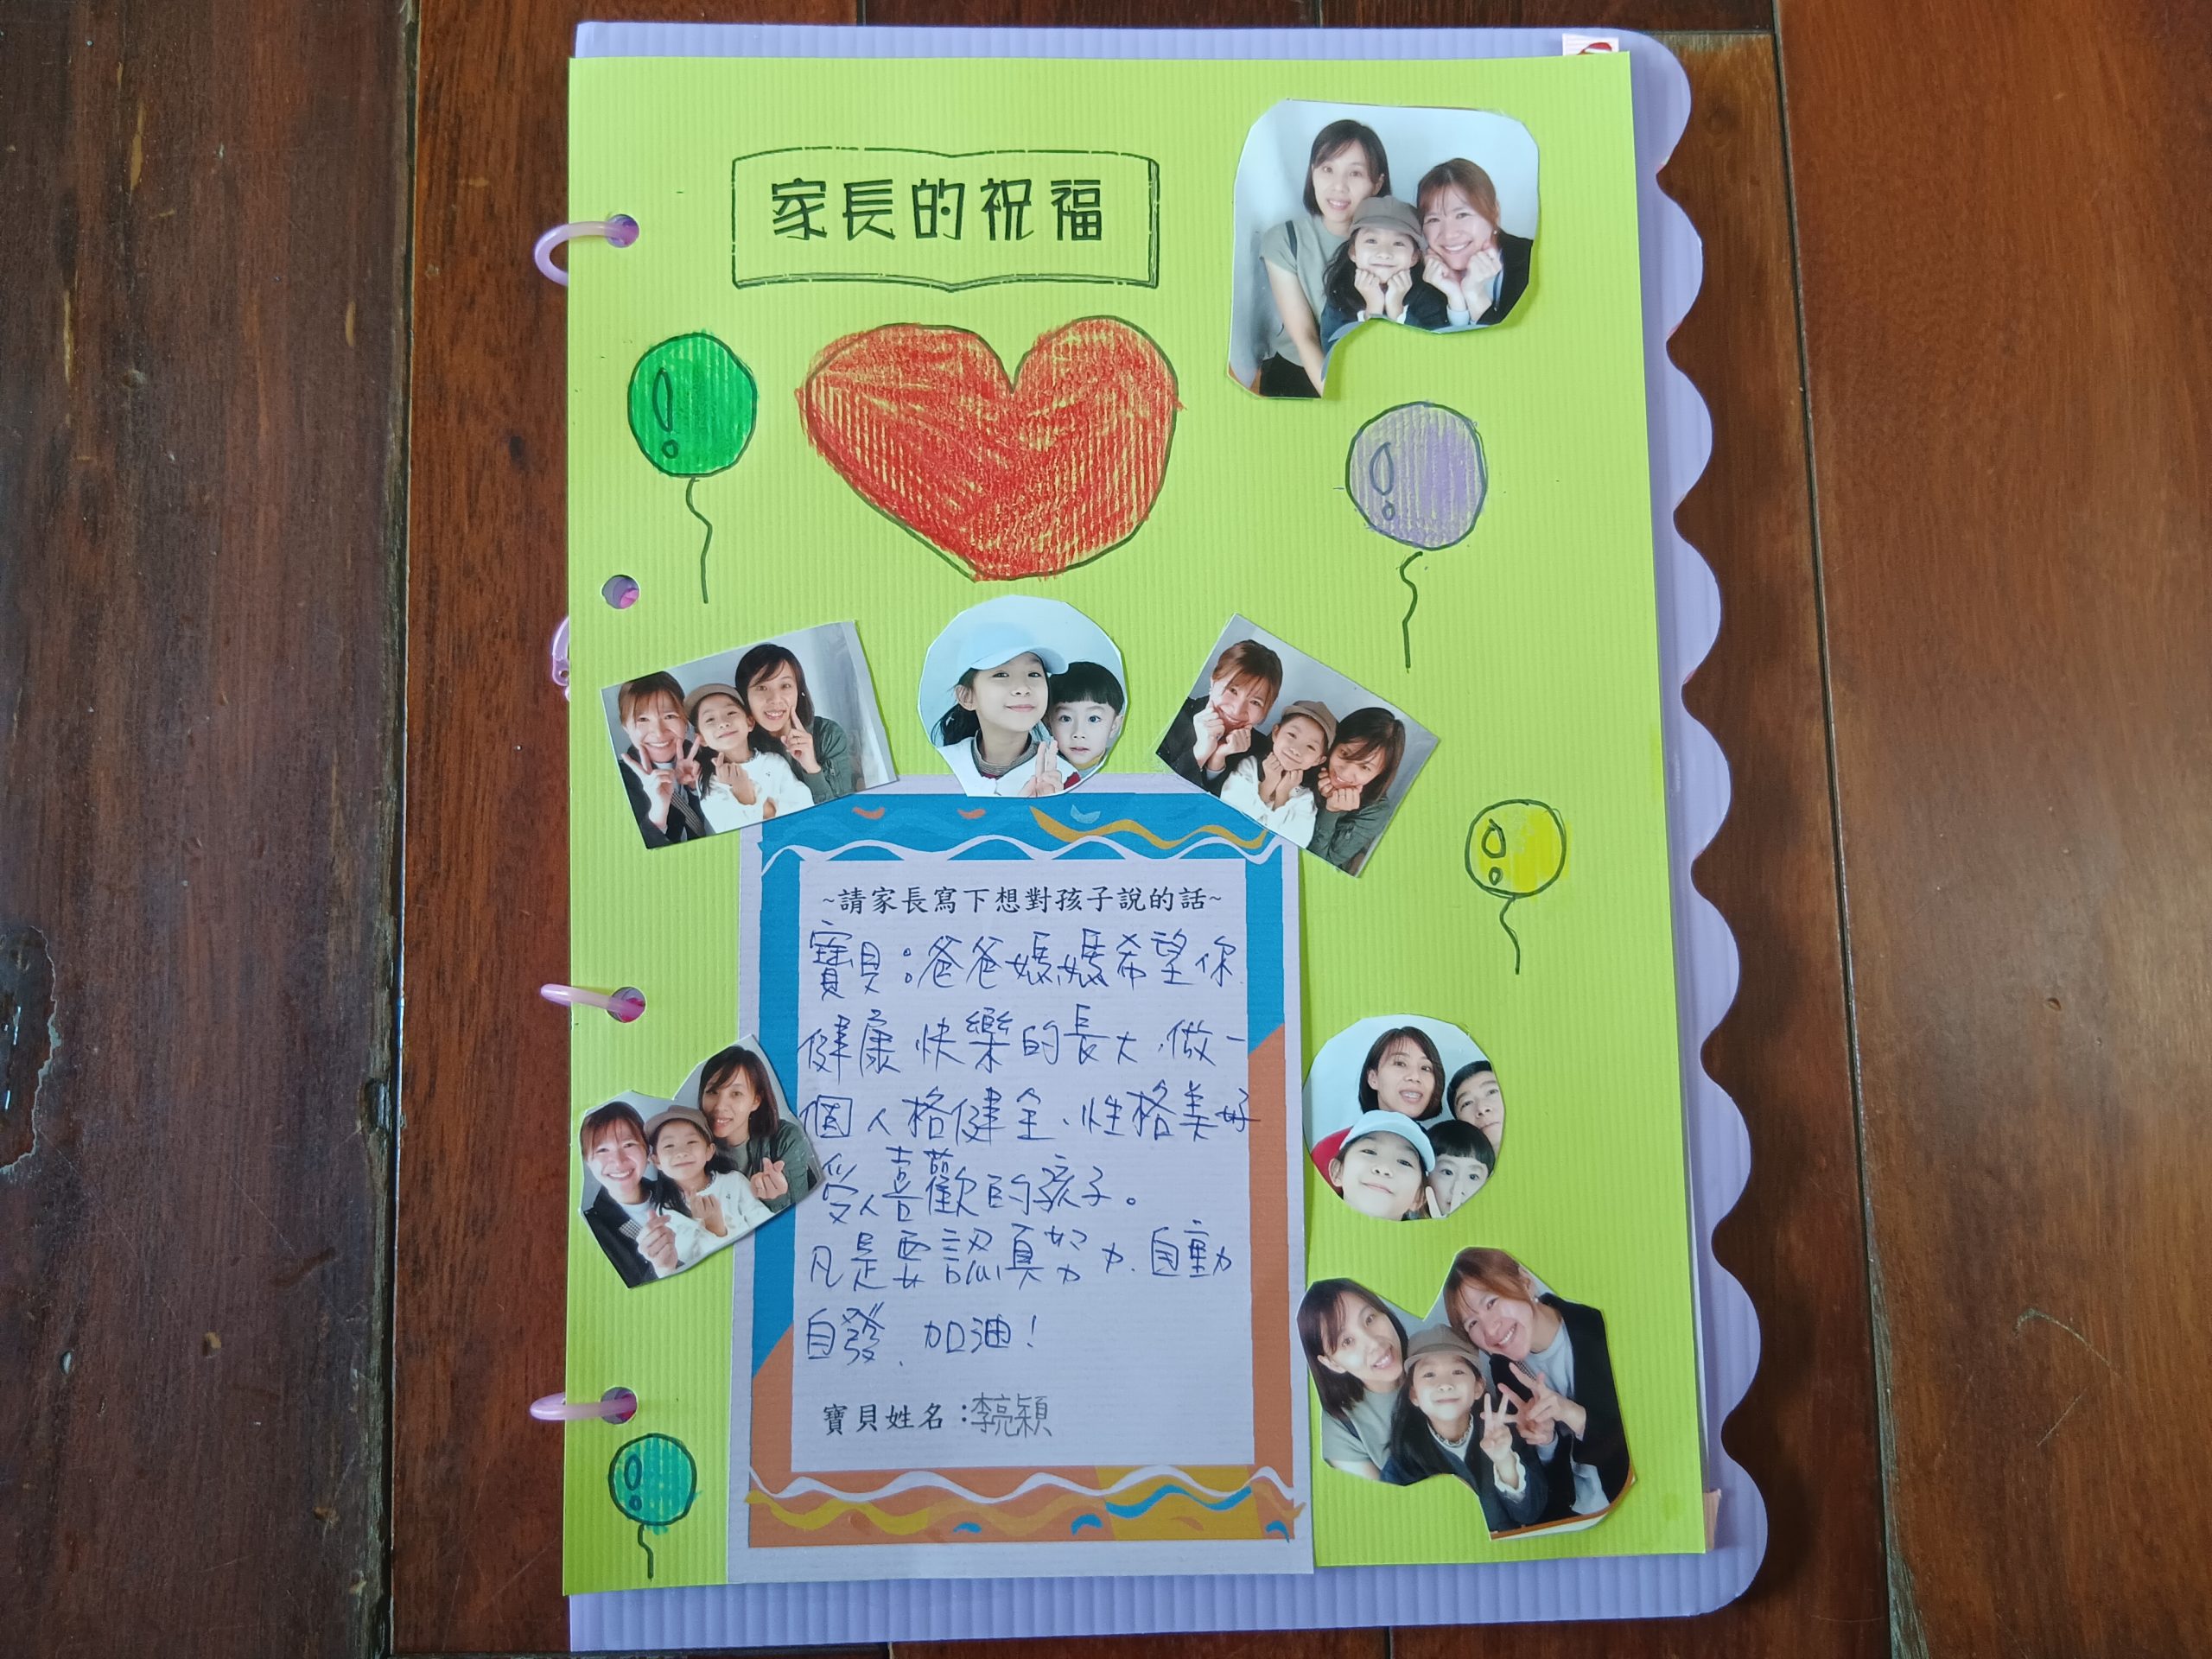 家長的祝福
~請家長寫下想對孩子說的話~
寶貝：爸爸媽媽希望你
健康快樂的長大，做一
個人格健全、性格美好
受人喜歡的孩子。
凡是要認真努力、自動
自發、加油！
寶貝姓名：李亮穎